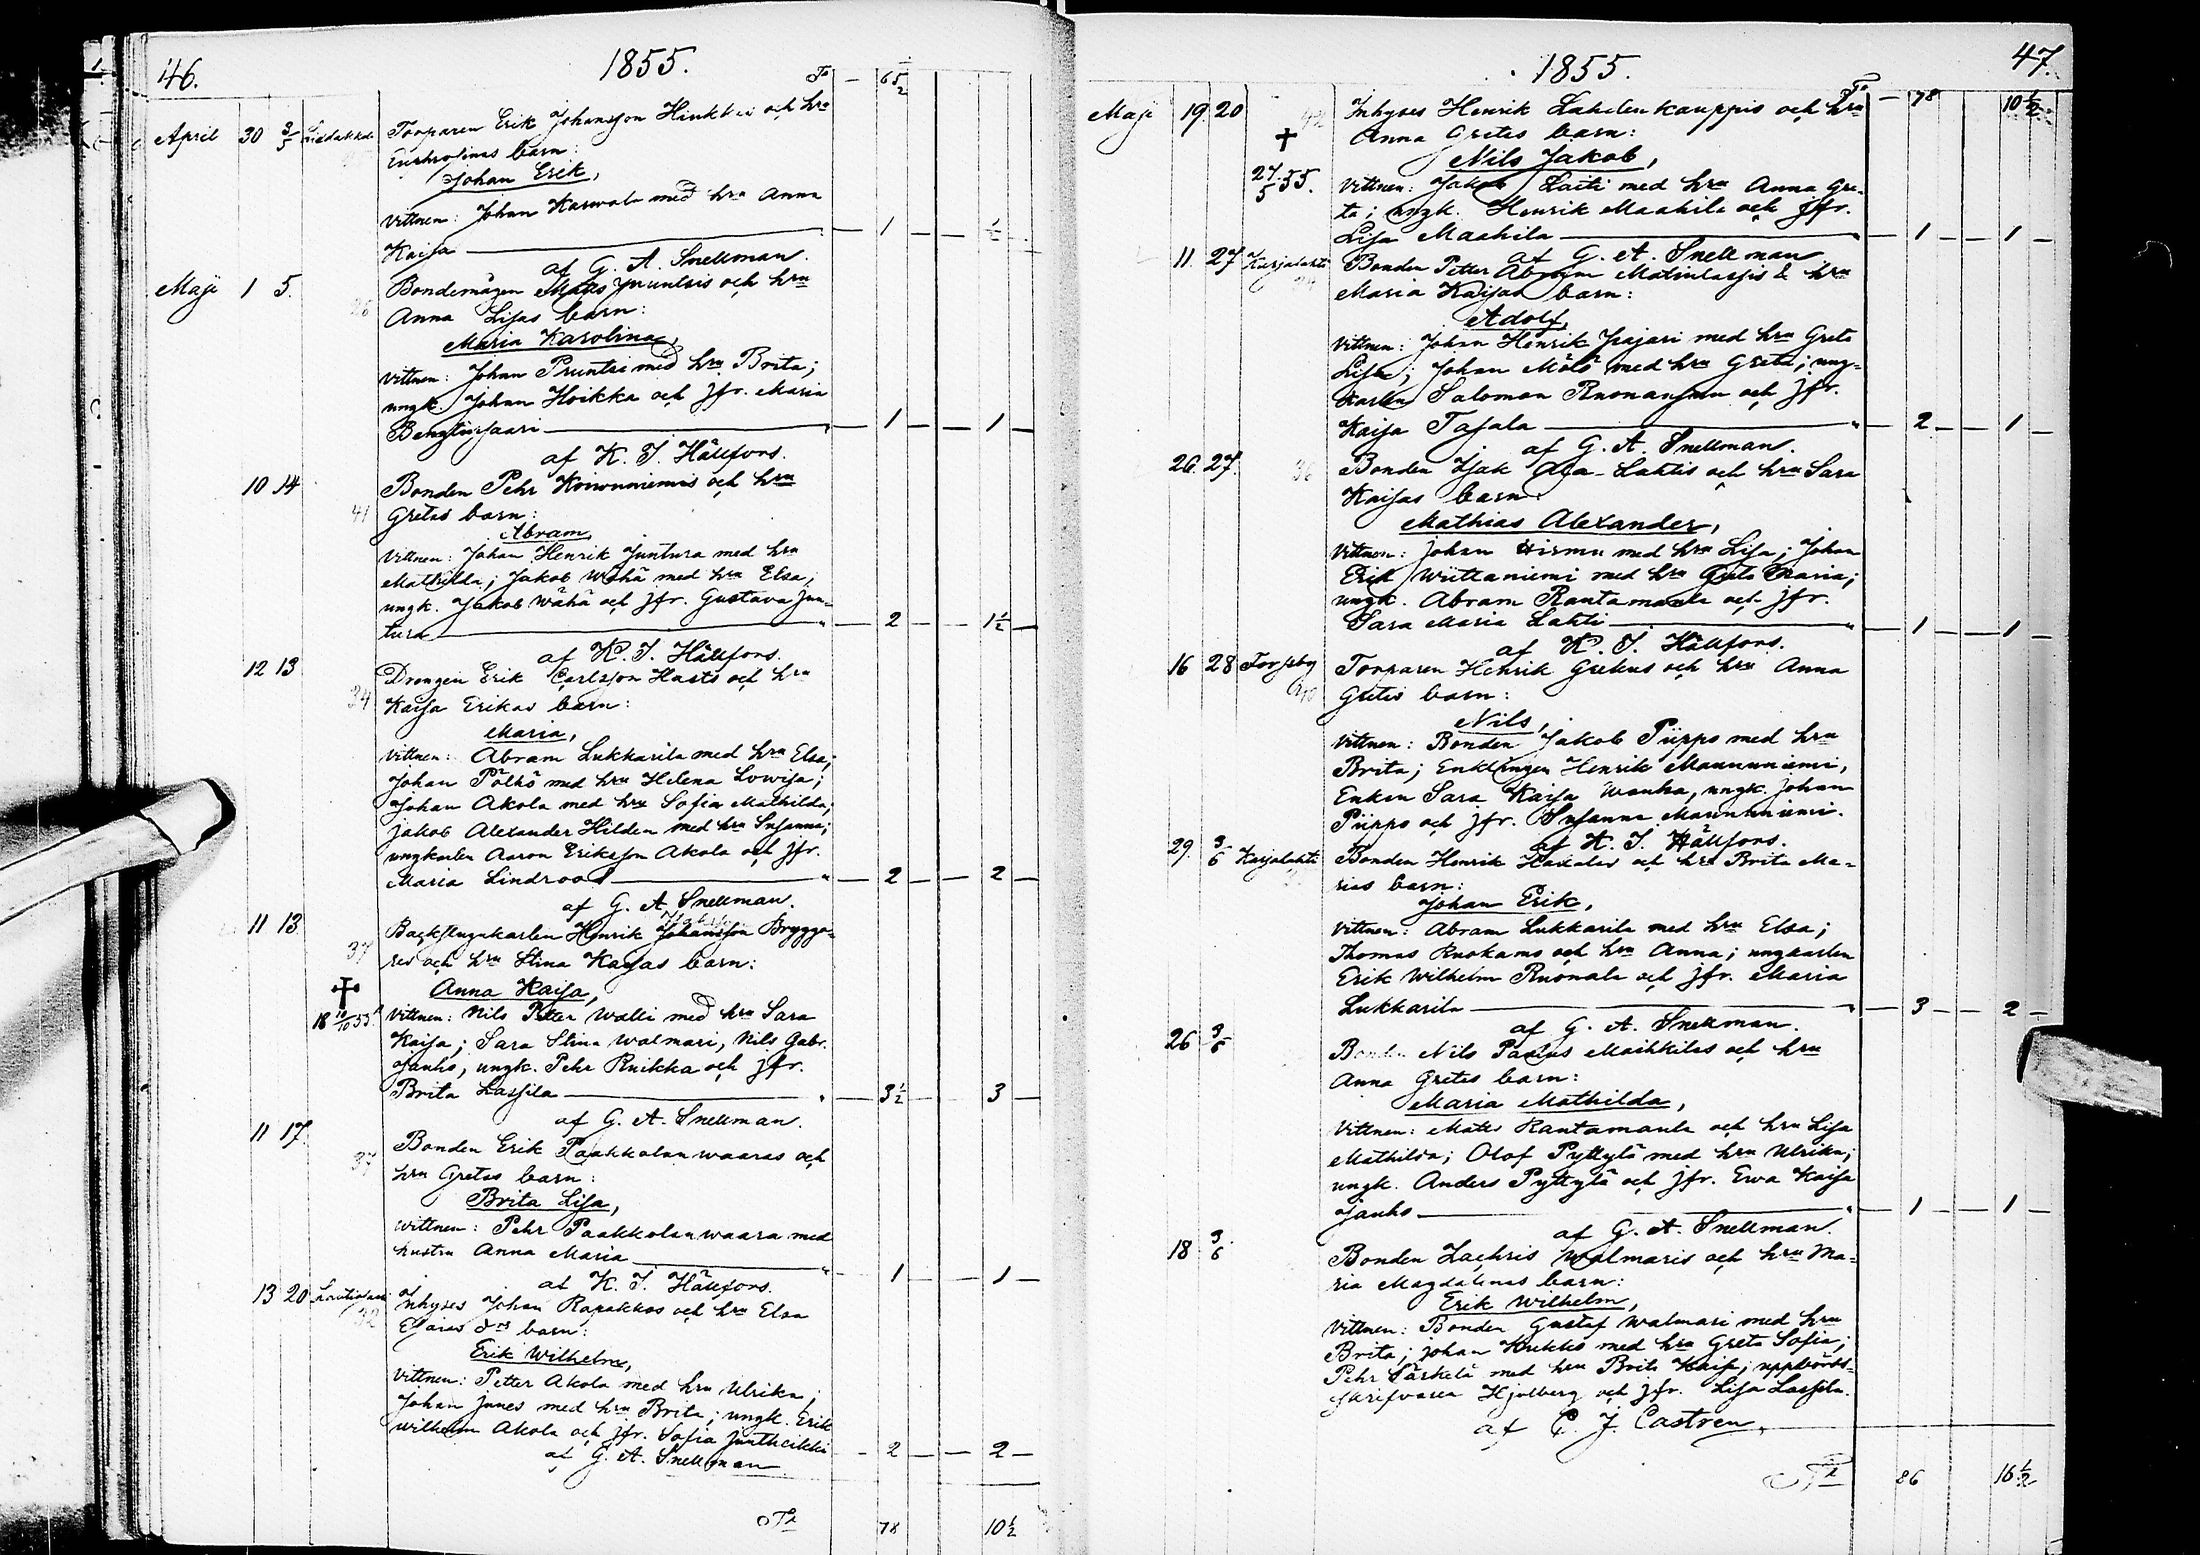 46.
1855.
Tr — 65 1/2
April 30 3/5 Torparen Erik Johansson och hru
barn:
Johan Erik,
Vittnen: Johan Karwola med hru Anna
Kaisa — 1 — 1/2
af G. A. Snellman.
Maji 1 5. Bondemågen Matts Pruntsis och hru
28 Anna Lisas barn:
Maria Karolina,
Vittnen: Johan Pruntsi med hru Brita;
ungk. Johan Hoikka och jfr. Maria
— 1 — 1 —
af K. J. Hällfors.
10 14 Bonden Pehr Koiwuniemis och hru
41 Gretas barn:
Abram,
Vittnen: Johan Henrik Juntura med hru
Mathilda; Jakob Wähä med hru Elsa;
ungk. Jakob Wähä och jfr. Gustava Jun-
tura — 2 — 1 1/2 —
af K. J. Hällfors.
12 13 Drengen Erik Carlsson Hasts och hru
34 Kaisa Erikas barn:
Maria,
Vittnen: Abram Lukkarila med hru Elsa;
Johan Pölhö med hru Helena Lowisa;
Johan Akola med hru Sofia Mathilda;
Jakob Alexander Hilden med hru Susanna;
ungkarlen Aaron Eriksson Akola och jfr.
Maria Lindroos — 2 — 2 —
af G. A. Snellman.
11 13 Backstugukarlen Henrik Johansson Brygga-
37 res och hru Stina Kaisas barn:
✝ Anna Kaisa,
18 10/10 55. Vittnen: Nils Petter Walli med hru Sara
Kaisa; Sara Stina Walmari, Nils Gabr.
Janho, ungk. Pehr Ruikka och jfr.
Brita Lassila — 3 1/2 — 3 —
af G. A. Snellman.
11 17. Bonden Erik Paakkolanwaaras och
37 hru Gretas barn:
Brita Lisa,
Wittnen: Pehr Paakkolanwaara med
hustru Anna Maria — 1 — 1 —
af K. J. Hällfors.
13 20 Inhyses Johan Rapakkos och hru Elsa
32 Esaias dr barn:
Erik Wilhelm,
Vittnen: Petter Akola med hru Ulrika;
Johan Junes med hru Brita; ungk. Erik
Wilhelm Akola och jfr. Sofia Juntheikki — 2 — 2 —
af G. A. Snellman
Tr 78 10 1/2
47.
1855.
Tr — 78 10 1/2
Maji 19. 20 Inhyses Henrik Lahdenkauppis och hru
42 Anna Gretas barn:
✝ Nils Jakob,
27/5 55. Vittnen: Jakob Laiti med hru Anna Gre-
ta; ungk. Henrik Maahila och jfr.
Lisa Maahila — 1 — 1 —
af G. A. Snellman
11. 27 Karjalahti Bonden Petter Abram Matinlassis & hru
Maria Kaisas barn:
Adolf,
Vittnen: Johan Henrik Pajari med hru Greta
Lisa; Johan Mölö med hru Greta; ung-
karlen Salomon Ruonansuu och jfr.
Kaisa Tasala — 2 — 1 —
af G. A. Snellman.
26. 27. Bonden Isak Ala-Lahtis och hru Sara
36 Kaisas barn:
Mathias Alexander,
Vittnen: Johan Hirmu med hru Lisa; Johan
Erik Wiittaniemi med hru Greta Maria;
ungk. Abram Rantamaula och jfr.
Sara Maria Lahti — 1 — 1 —
af K. J. Hällfors.
16 28 Torpby Torparen Henrik Grekus och hru Anna
Gretas barn:
Nils,
Vittnen: Bonden Jakob Piippo med hru
Brita; Enklingen Henrik Maununiemi,
Enkan Sara Kaisa Wanha, ungk. Johan
Piippo och jfr. Susanna Maununiemi.
af K. J. Hällfors.
29. 3/6 Karjalahti Bonden Henrik och hru Brita Ma-
rias barn:
Johan Erik,
Vittnen: Abram Lukkarila med hru Elsa;
Thomas Ruokamo och hru Anna; ungkarlen
Erik Wilhelm Ruonala och jfr. Maria
Lukkarila — 3 — 2 —
af G. A. Snellman.
26 3/6 Bonden Nils Paulus Maihkilas och hru
Anna Gretas barn:
Maria Mathilda,
Vittnen: Matts Rantamaula och hru Lisa
Mathilda; Olof Pyttylä med hru Ulrika;
ungk. Anders Pyttylä och jfr. Ewa Kaisa
Janho — 1 — 1 —
af G. A. Snellman.
18 3/6 Bonden Zachris Walmaris och hru Ma-
ria Magdalenas barn:
Erik Wilhelm,
Vittnen: Bonden Gustaf Walmari med hru
Brita; Johan Krekko med hru Greta Sofia;
Pehr Särkelä med hru Brita Kaisa; uppbörds-
skrifvaren Hjulberg och jfr. Lisa Lassila.
af C. J. Castrén.
Tr 86 16 1/2